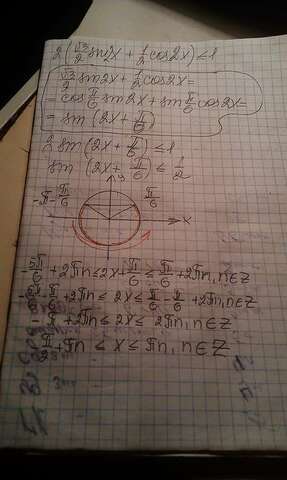 2(√3/2 sin2x + 1/2 cos2x) ≤ 1
√3/2 sin2x + 1/2 cos2x =
= cos π/6 sin2x + sin π/6 cos2x =
= sin (2x + π/6)
2 sin (2x + π/6) ≤ 1
sin (2x + π/6) ≤ 1/2
y
-π-π/6 π/6
x
-5π/6 + 2πn ≤ 2x + π/6 ≤ π/6 + 2πn, n∈Z
+ 2πn ≤ 2x ≤ π/6 - π/6 + 2πn, n∈Z
+ 2πn ≤ 2x ≤ 2πn, n∈Z
π/2 + πn ≤ x ≤ πn, n∈Z